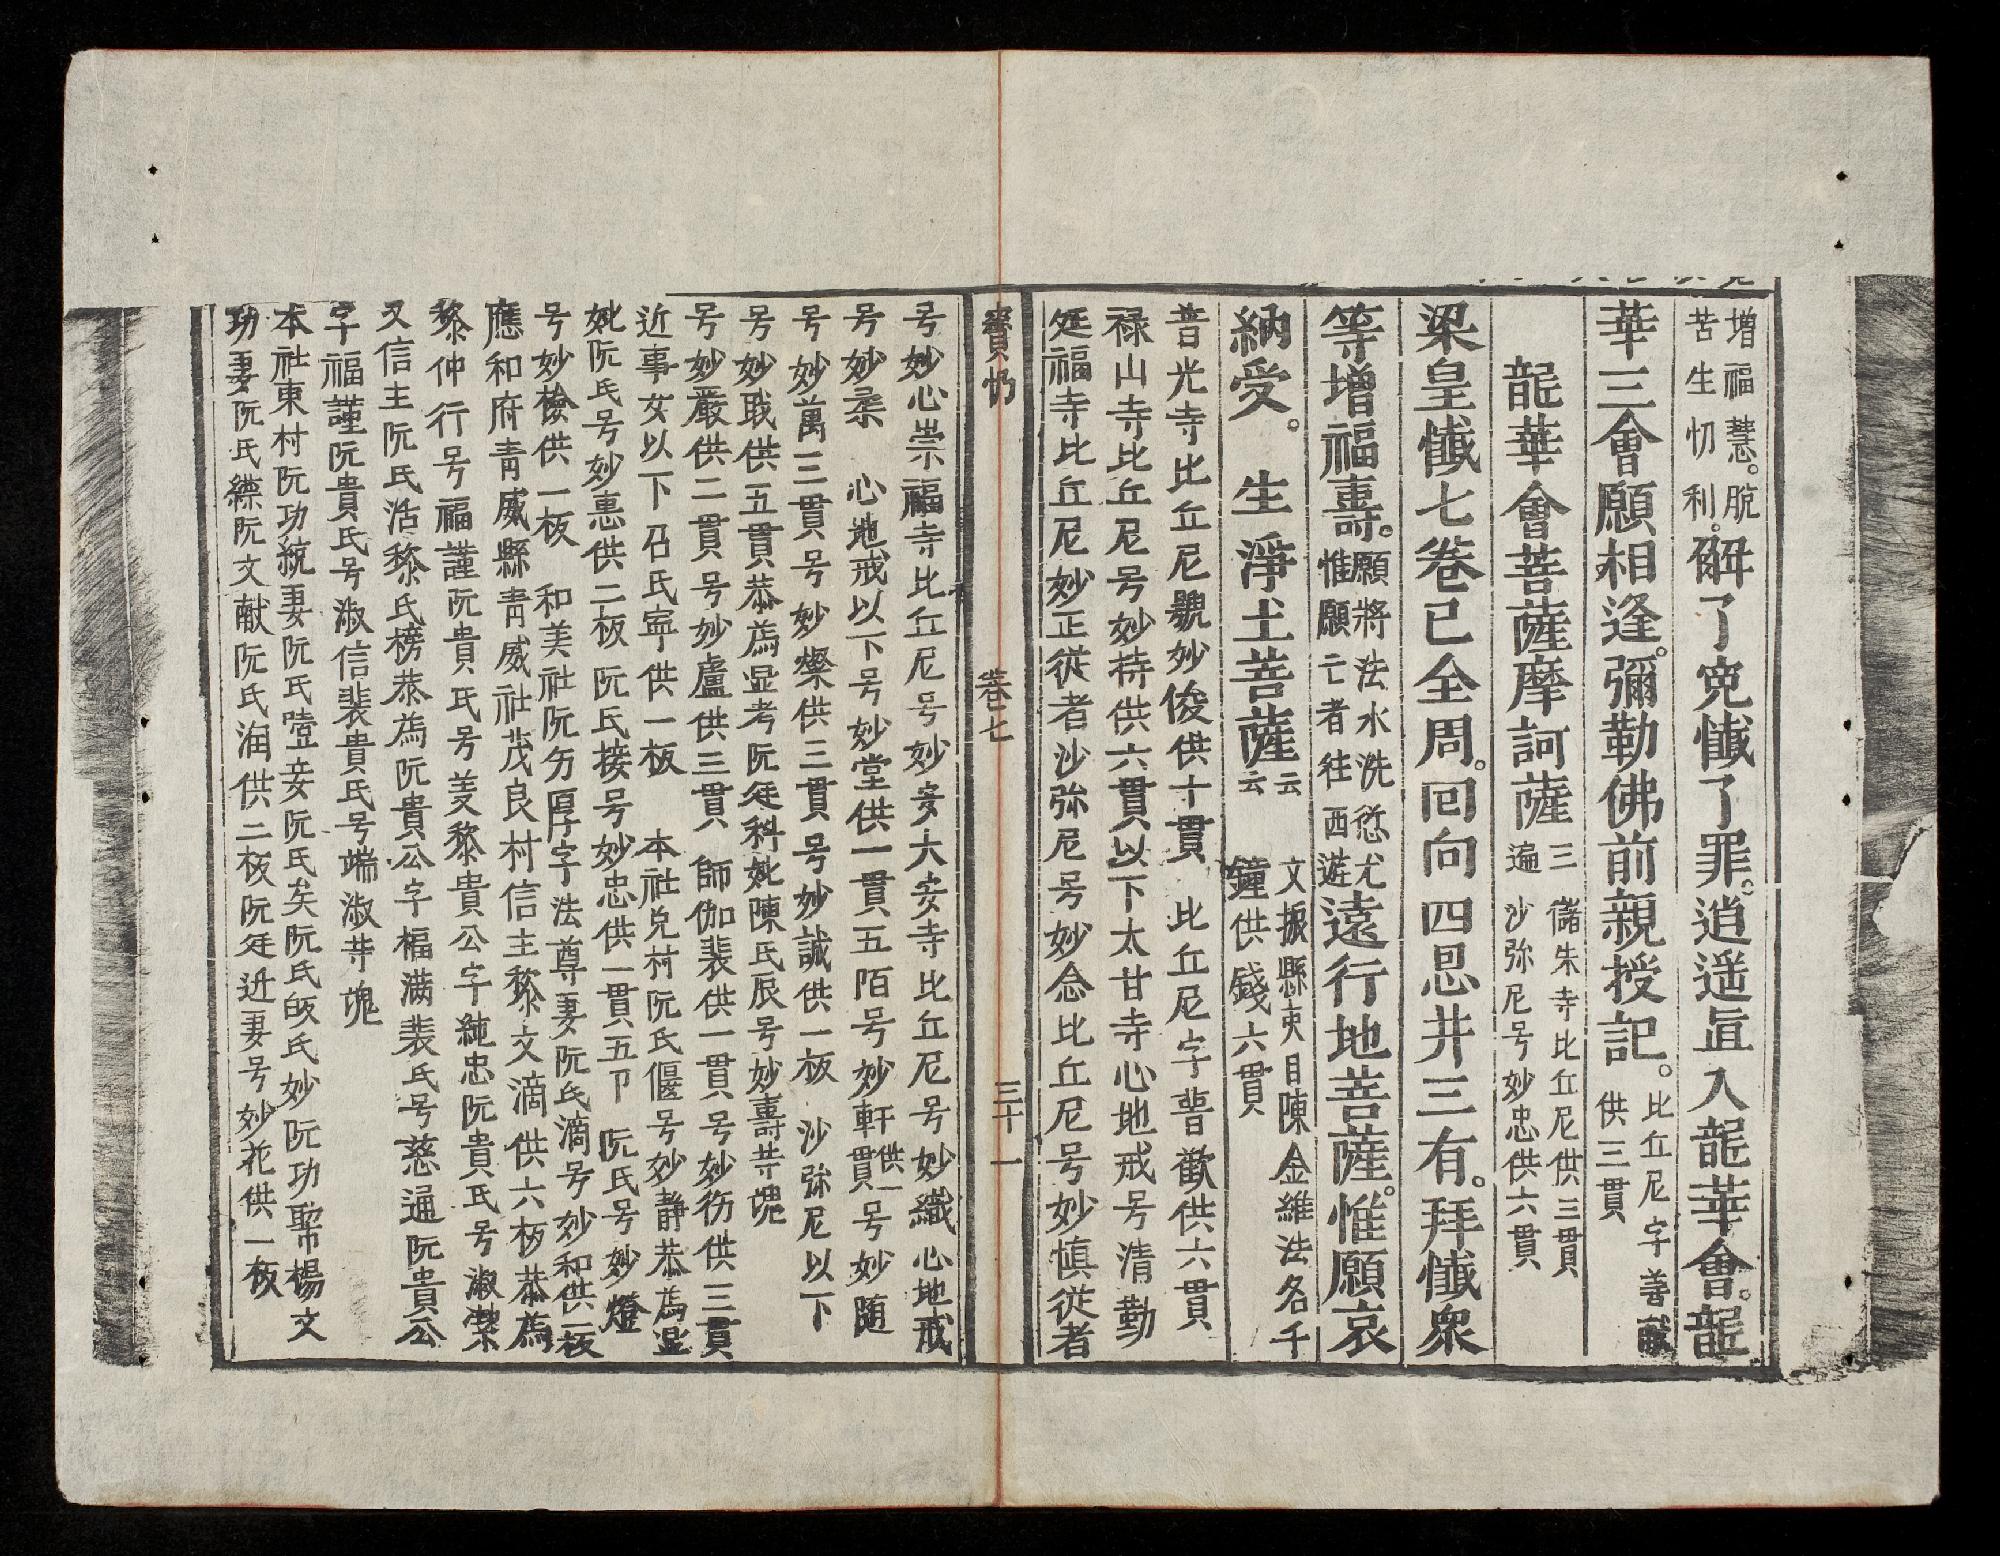 增福慧。脫苦生忉利。解了寃懺了罪。逍遥直入龍華會。龍
華三會願相逢。彌勒佛前親授記。比丘尼字善献供三貫
龍華會菩薩摩訶薩三遍 儲朱寺比丘尼供三貫沙弥尼号妙忠供六貫
梁皇懺七卷已全周。囘向四恩并三有。拜懺衆
等增福壽。願將法水洗愆尤惟願亡者往西遊遠行地菩薩。惟願哀
納受。 生淨土菩薩云云 文振縣吏目陳金維法名千鐘供錢六貫
普光寺比丘尼號妙俊供十貫 比丘尼字普歡供六貫
禄山寺比丘尼号妙待供六貫以下太甘寺心地戒号清勤
延福寺比丘尼妙正從者沙弥尼号妙念比丘尼号妙慎從者
寶忉 卷七 三十一
号妙心崇福寺比丘尼号妙安大安寺比丘尼号妙纖心地戒
号妙柔 心地戒以下号妙堂供一貫五陌号妙軒供一貫号妙随
号妙萬三貫号妙燦供三貫号妙誠供一板 沙弥尼以下
号妙珴供五貫恭為显考阮廷科妣陳氏辰号妙壽䓁魂
号妙嚴供二貫号妙盧供三貫 師伽裴供一貫号妙衍供三貫
近事女以下召氏寧供一板 本社兑村阮氏偃号妙静恭為显
妣阮氏号妙惠供二板阮氏接号妙忠供一貫五卩 阮氏号妙燈
号妙檢供一板 和美社阮仿厚字法尊妻阮氏滴号妙和供一板
應和府青威縣青威社茂良村信主黎文滴供六板恭為
黎仲行号福謹阮貴氏号姜黎貴公字純忠阮貴氏号淑潔
又信主阮氏活黎氏榜恭為阮貴公字福满裴氏号慈通阮貴公
字福謹阮貴氏号淑信裴貴氏号端淑䓁魂
本社東村阮功統妻阮氏噎妾阮氏矣阮氏皈氏妙阮功幣楊文
功妻阮氏縹阮文献阮氏润供二板阮廷近妻号妙花供一板